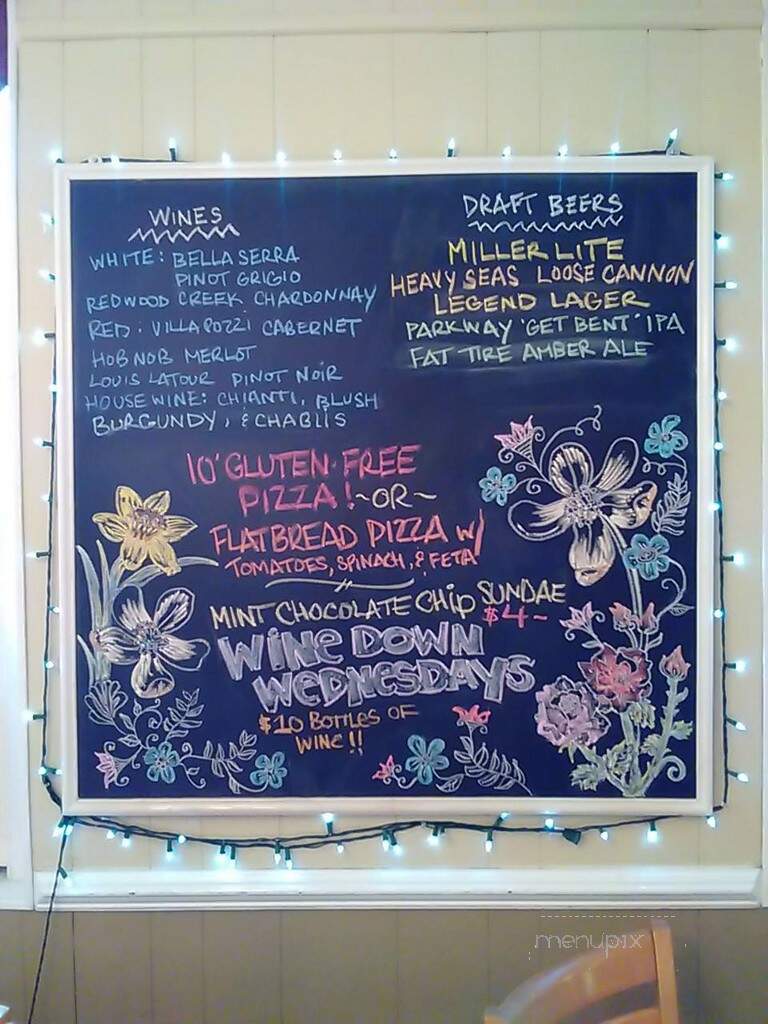 WINES
WHITE: BELLA SERRA
PINOT GRIGIO
REDWOOD CREEK CHARDONNAY
RED: VILLA POZZI CABERNET
HOB NOB MERLOT
LOUIS LATOUR PINOT NOIR
HOUSE WINE: CHIANTI, BLUSH
BURGUNDY, & CHABLIS
DRAFT BEERS
MILLER LITE
HEAVY SEAS LOOSE CANNON
LEGEND LAGER
PARKWAY 'GET BENT' IPA
FAT TIRE AMBER ALE
10" GLUTEN-FREE
PIZZA! ~OR~
FLATBREAD PIZZA W/
TOMATOES, SPINACH, & FETA
MINT CHOCOLATE CHIP SUNDAE
$4-
WINE DOWN
WEDNESDAYS
$10 BOTTLES OF
WINE!!
menupix